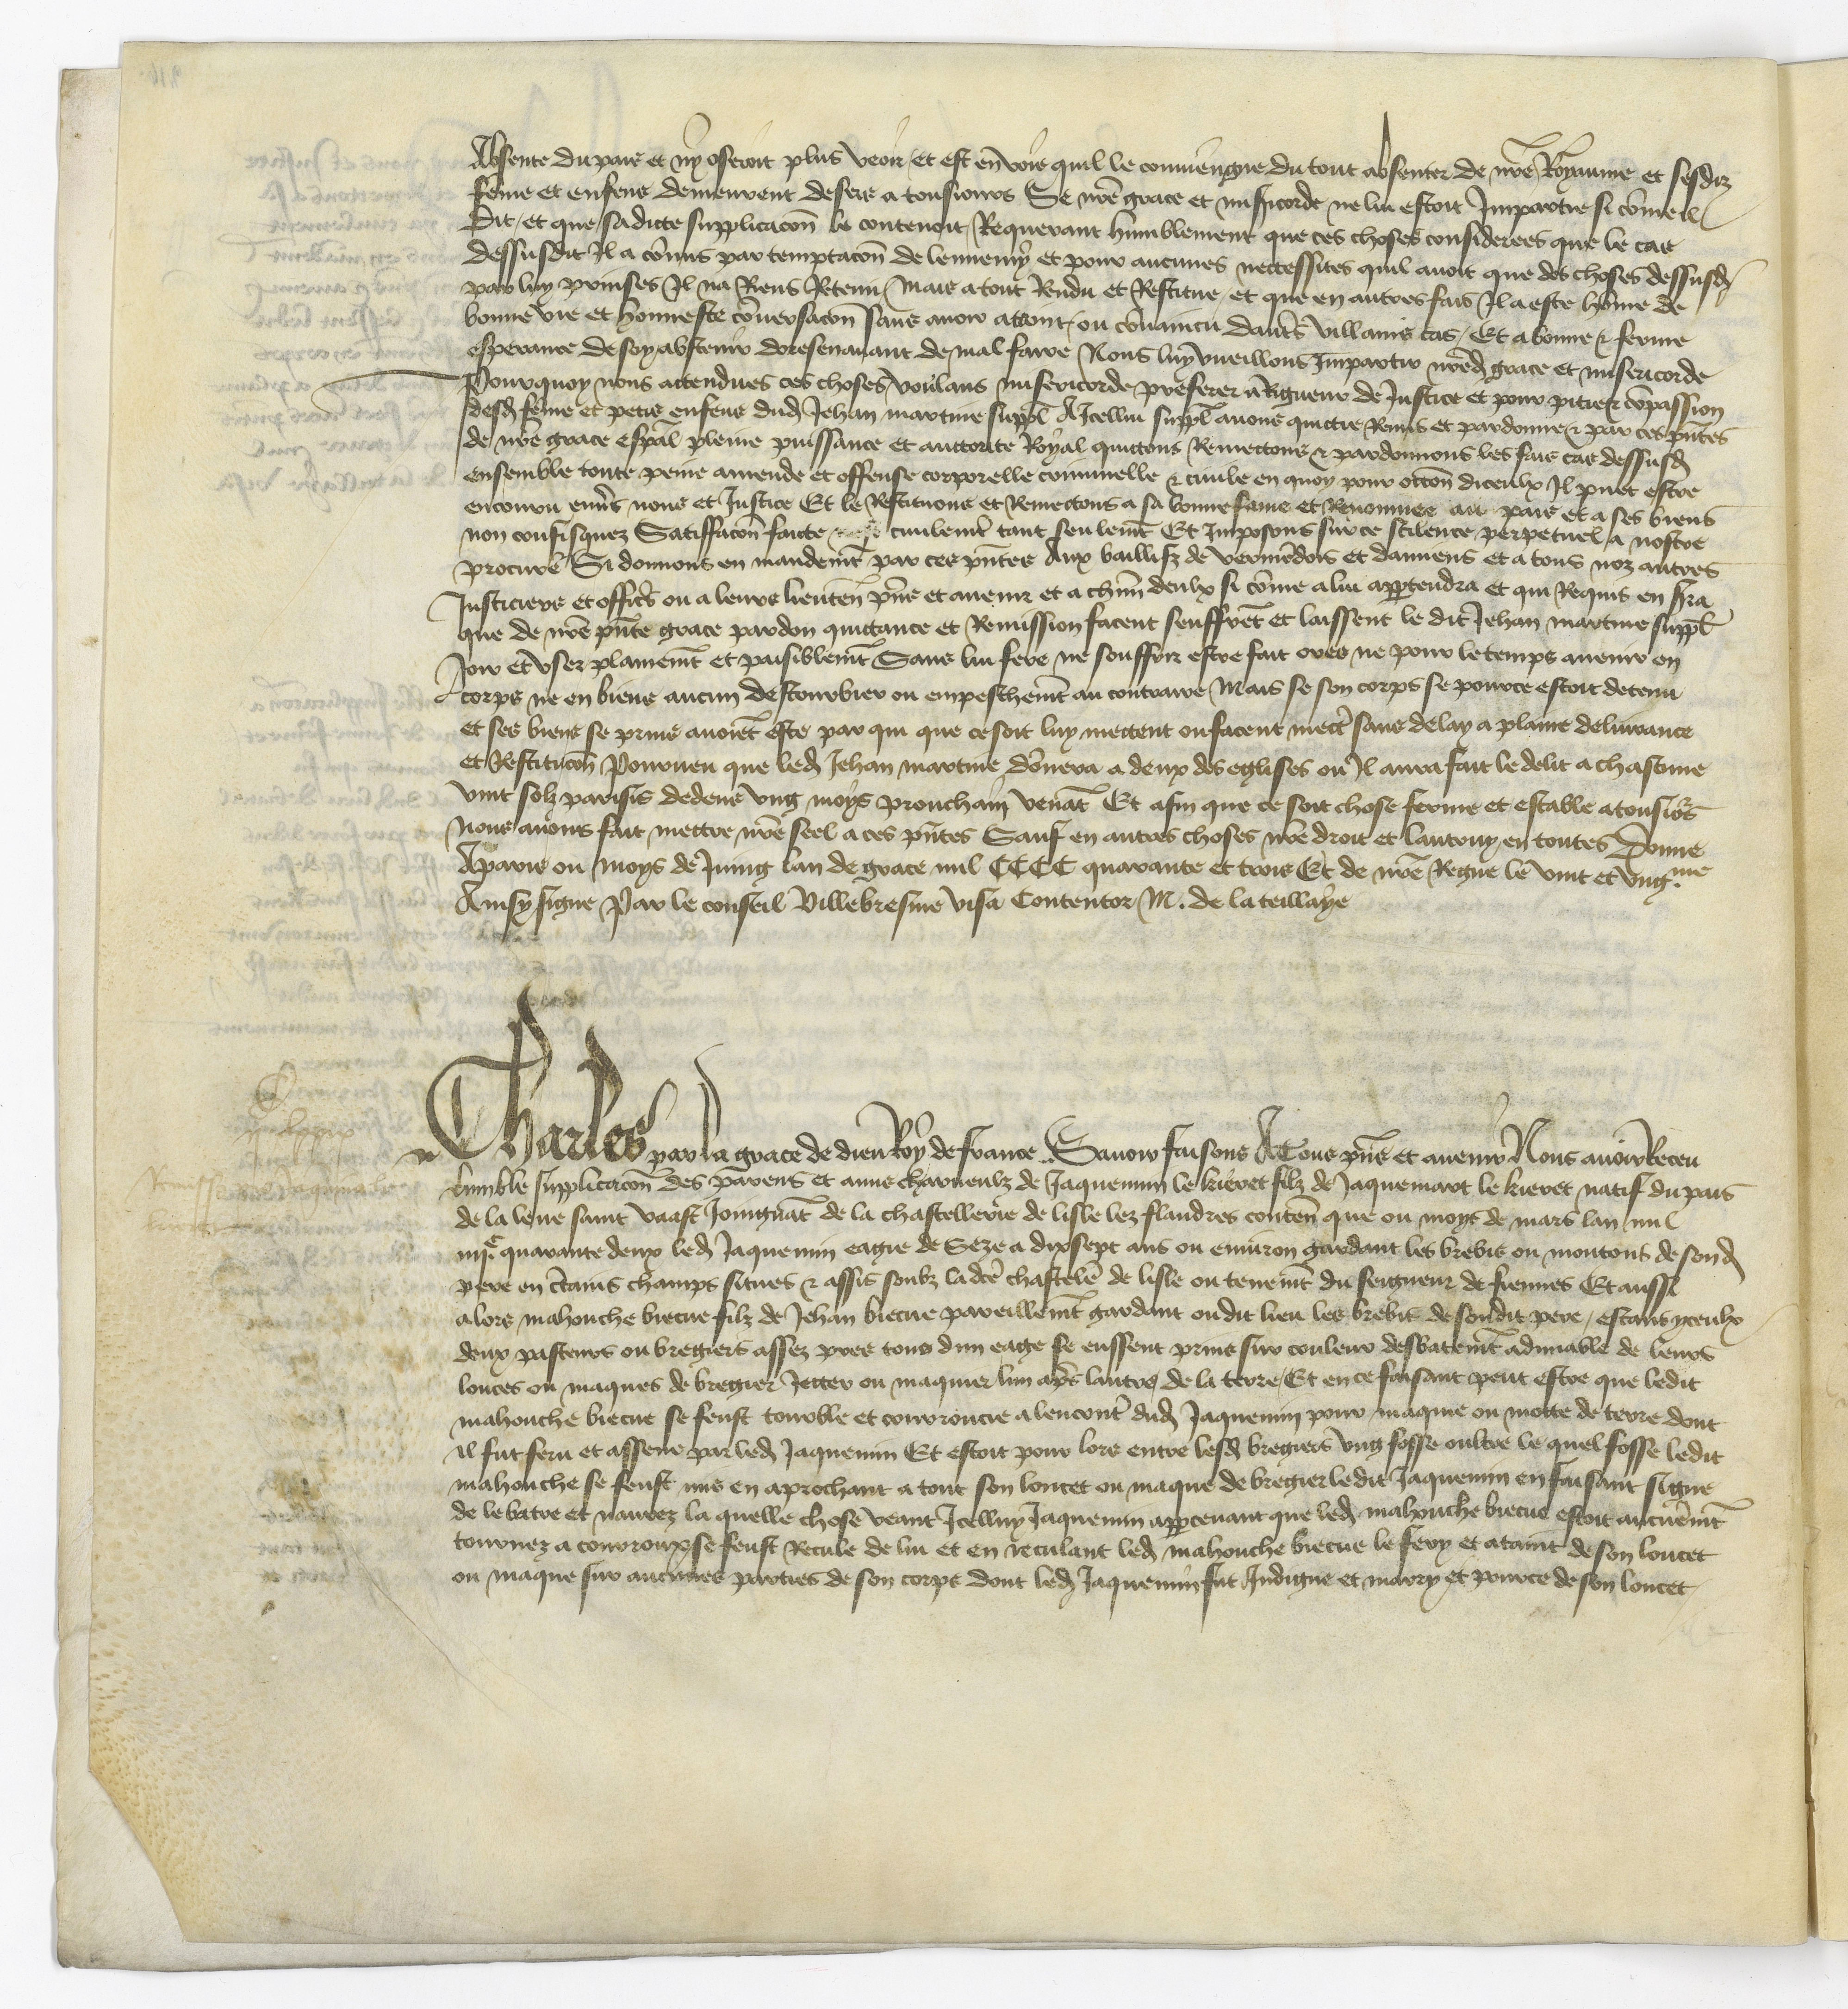 Absente du pais et ny oseroit plus venir et est en voie quil le conviengne du tout absenter de nr̃e Royaume et sesdiz
fem̃e et enfens demeurent desers a tousiours Se nr̃e grace et mis̃icorde ne lui estoit Impartie si com̃e il
dit et que sadicte supplicacion̄ le contenoit Requerant humblement que ces choses considerees que le cas
dessusdit Il a com̃is par temptacion̄ de lennemy et pour aucunes neccessites quil auoit que des choses dessusd̃
par luy prinses Il na Riens Retenu Mais a tout Rendu et Restitue et que en autres fais Il a este hom̃e de
bonne vie et honneste con̄uersacion̄ sans auoir attaint ou con̄uaincu daut̃s villains cas Et a bonne & ferme
esperance de soy abstenir doresenauant de mal faire Nous luy vueillons Impartir nr̃ed̃ grace et misericorde
Pourquoy nous attendues ces choses voulans misericorde preferer a Rigueur de Justice et pour pitie & com̃passion
desd̃ fem̃e et petis enfens dud̃ Jehan martine suppl̃ A Icellui suppl̃ auons quictie Remis et pardonne & par ces pñtes
de nr̃e grace esp̃al pleine puissance et auctorite Royal quittons Remettons & pardonnons les fais cas dessusd̃
ensemble toute peine amende et offense corporelle criminelle & ciuile en quoy pour occion̄ diceulx Il puet estre
encouru enuers nous et Justice Et le Restituons et Remectons a sa bonne fame et Renommee au pais et a ses biens
non confisquez Satiffacion̄ faicte ciuilemẽt tant seulemẽt Et Imposons sur ce scilence perpetuel a nostre
procureur Si donnons en mandemẽt par ces pñtes Aux baillifz de vermendois et damiens et a tous noz autres
Justiciers et officiers ou a leurs lieuten̄ pñs et auenir et a chũn deulx si com̃e a lui appartendra et qui Requis en s̃ra
que de nr̃e pñte grace pardon quittance et Remission facent seuffrẽt et laissent le dit Jehan martine suppl̃
Joir et vser plainemẽt et paisiblemẽt Sans lui fere ne souffrir estre fait ores ne pour le temps auenir en
corps ne en biens aucun destourbier ou empeschemẽt au contraire Mais se son corps se pource estoit detenu
et ses biens se prins auoiẽt este par qui que ce soit luy mettent ou facent mectr̃ sans delay a plaine deliurance
et Restitucion̄ Pourueu que led̃ Jehan martine don̄nera a deux des eglises ou Il aura fait le delit a chascune
vint solz parisis dedens vng moys prouchain venãt Et afin que ce soit chose ferme et estable a tousio's
Nous auons fait mettre nr̃e seel a ces pñtes Sauf en autres choses nr̃e droit et lautruy en toutes Donne
A paris ou moys de Juing lan de grace mil CCCC quarante et trois Et de nr̃e Regne le vint et vng.me
Ainsy signe Par le conseil Villebresme visa Contentor M. de la teillaye
Charles par la grace de dieu Roy de france Sauoir faisons A Tous pñs et auenir Nous auoir Receu
lumble supplicacion̄ des parens et amis charnelz de Jaquemin le kieret filz de Jaquemart le kieret natif du pais
de la leue saint vaast Joingnãt de la chastellerie de lisle lez flandres conten̄ que ou moys de mars lan mil
iiij.c quarante deux led̃ Jaquemin eagie de Seze a dixsept ans ou enuiron gardant les brebis ou moutons de sond̃
pere en c̃tains champs situes & assis soubz ladc̃e chastelr̃ de lisle ou tenemẽt du seigneur de fiennes Et aussi
alors mahouche biecue filz de Jehan biecue pareillemẽt gardant oudit lieu les brebis de sondit pere estans yceulx
deux pasteurs ou bregiers assez pres tous dun eage se eussent prins sur couleur desbatemẽt admiable de leurs
louces ou maques de bregier Jetter ou maquier lun ap̃s lautre de la terre Et en ce faisant peut estre que ledit
mahouche biecue se feust trouble et courroucie a lencontr̃ dud̃ Jaquemin pour maque ou motte de terre dont
il fut feru et assene par led̃ Jaquemin Et estoit pour lors entre lesd̃ bregiers vng fosse oultre le quel fosse ledit
mahouche se feust mis en aprochant a tout son loucet ou maque de bregier ledit Jaquemin en faisant signe
de le batre et naurez la quelle chose veant Icelluy Jaquemin apperceuant que led̃ mahouche biecue estoit aucunemẽt
tournez a courroux se feust Recule de lui et en reculant led̃ mahouche biecue le fery et ataint de son loucet
ou maque sur aucunes parties de son corps dont led̃ Jaquemin fut Indigne et marry et pource de son loucet